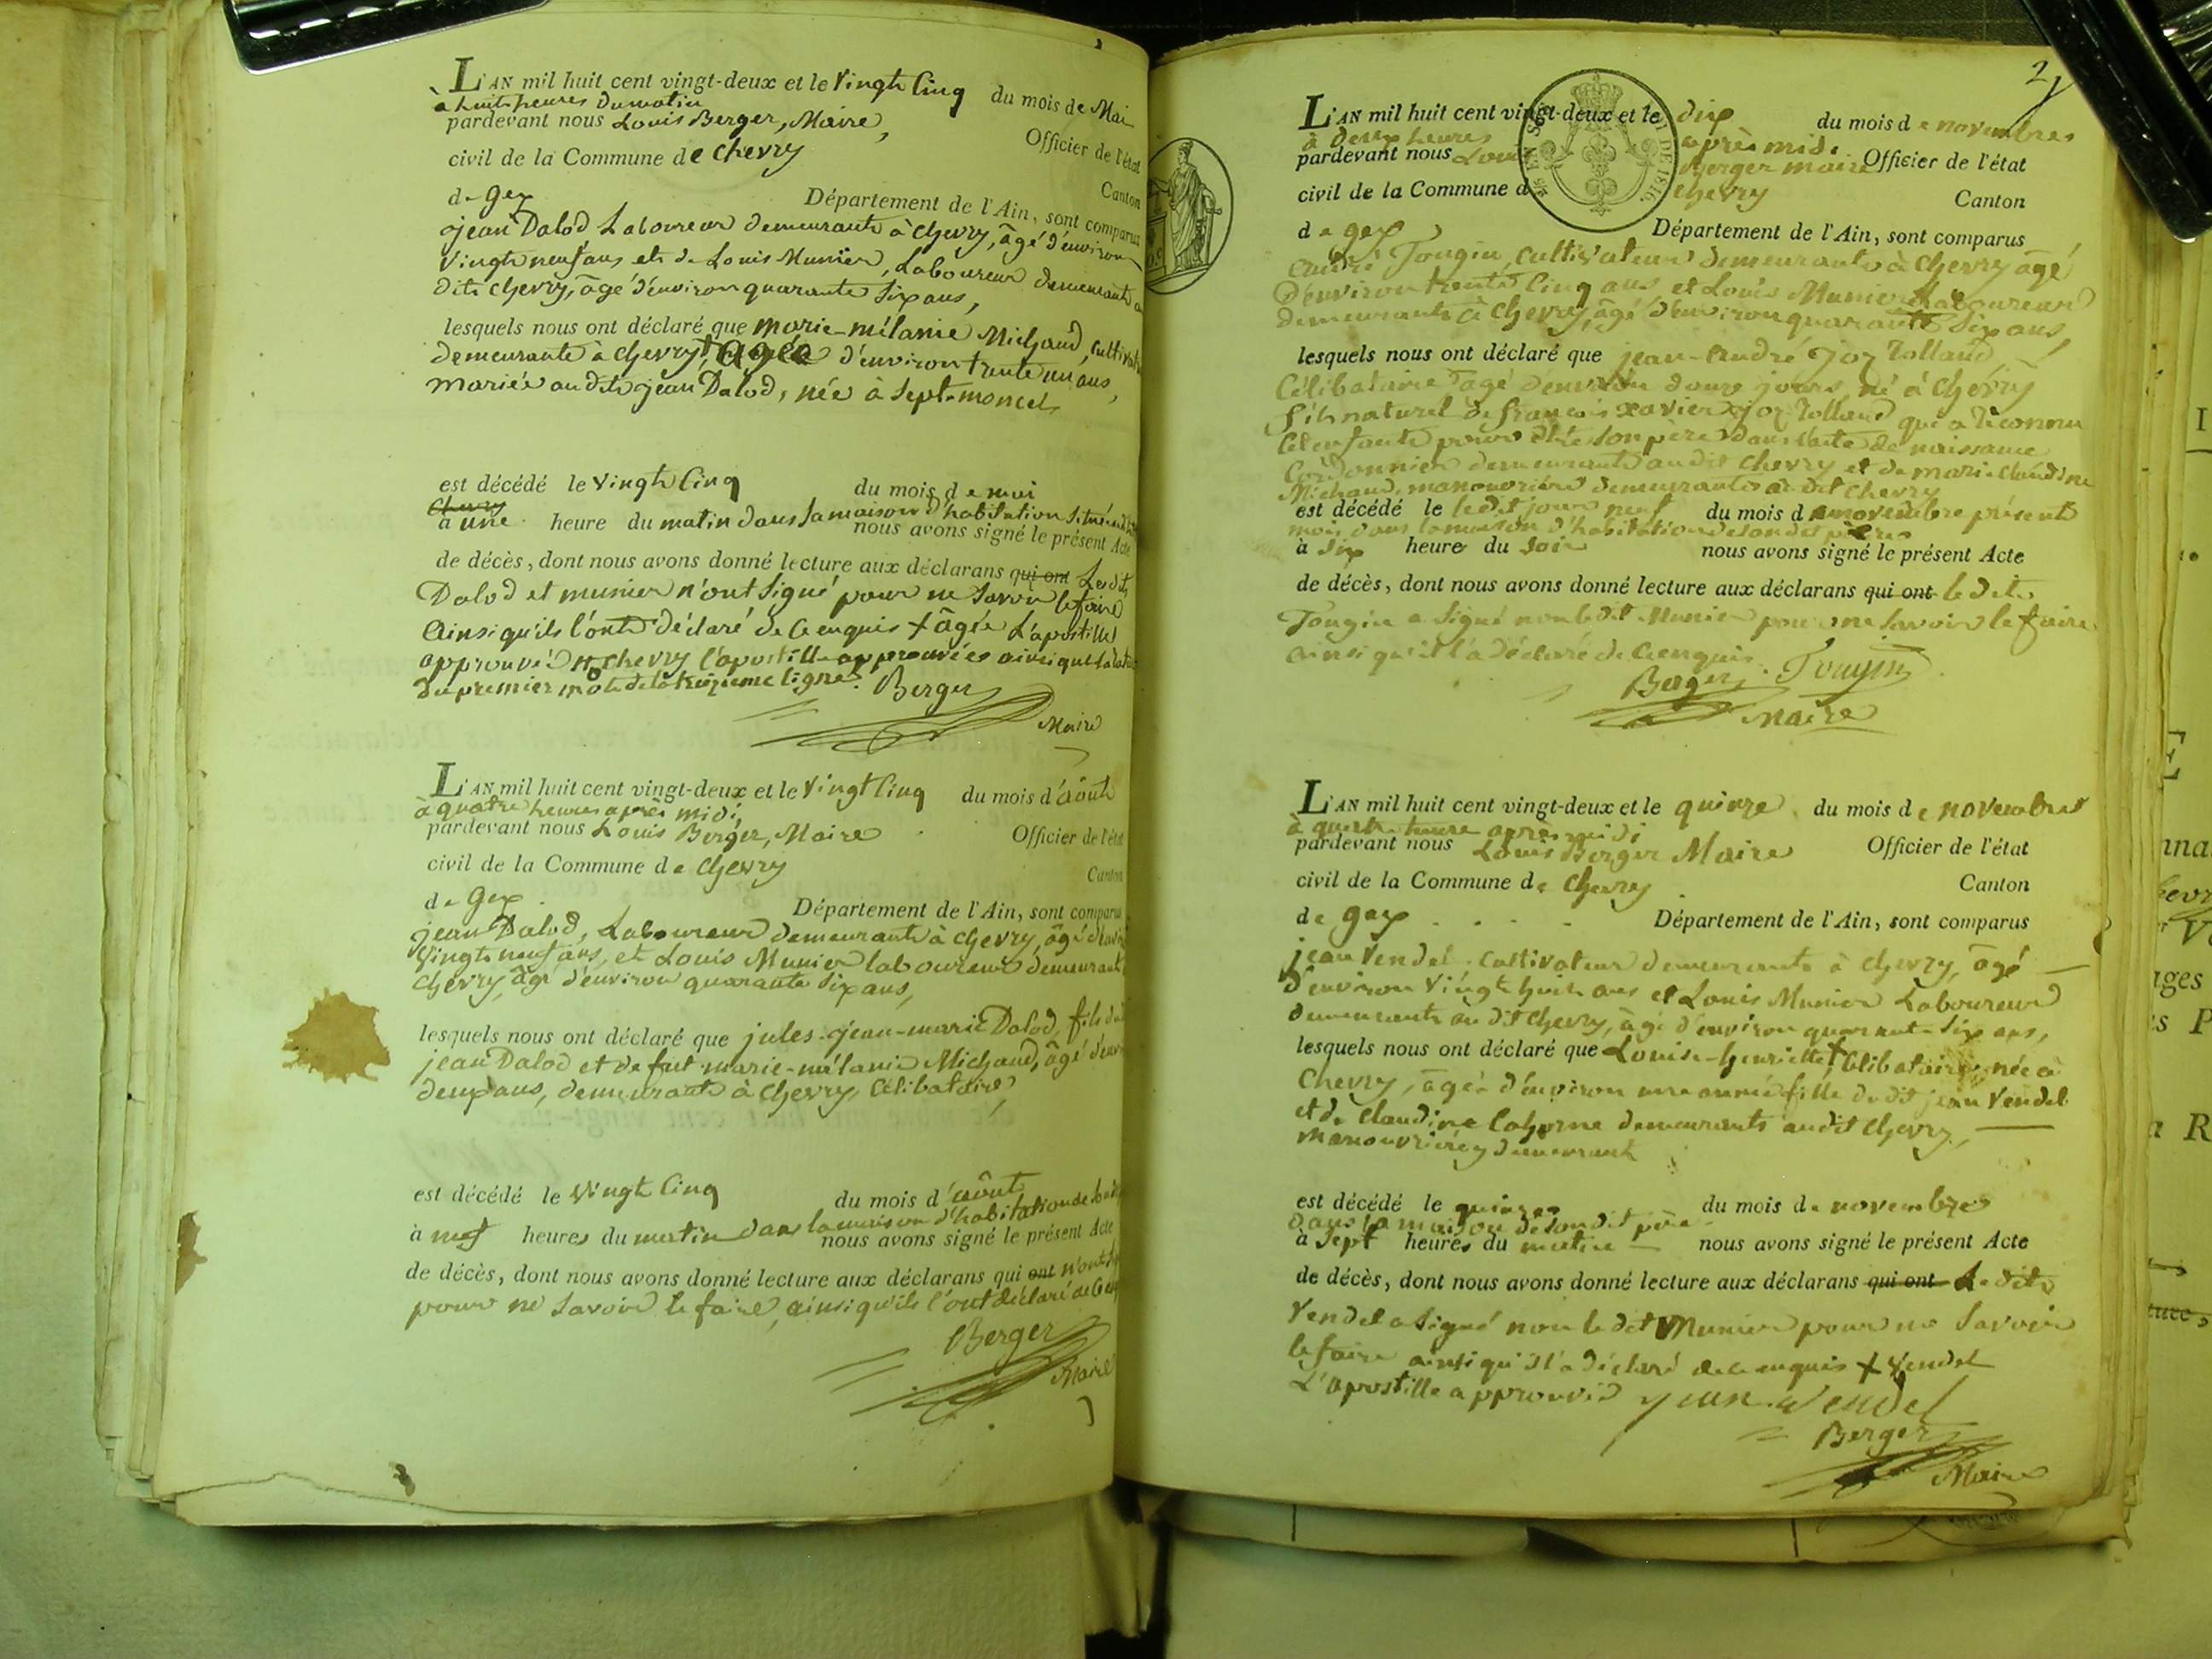 L'AN mil huit cent vingt-deux et le Vingt Cinq du mois de Mai
à huit heures du matin
pardevant nous Louis Berger, Maire, Officier de l'état
civil de la Commune de Chevry Canton
de Gex Département de l'Ain, sont comparus
jean Dalod Laboureur demeurant à Chevry, âgé d'environ
Vingt neuf ans et de Louis Munier, Laboureur demeurant a
dit Chevry, âgé d'environ quarante six ans,
lesquels nous ont déclaré que marie-mélanie Michaud,
demeurante à Chevry, âgée d'environ trente un ans,
mariée au dit jean Dalod, née à Sept-moncel
est décédé le Vingt Cinq du mois de mai
Chevry
à une heure du matin dans sa maison d'habitation
nous avons signé le présent Acte
de décès, dont nous avons donné lecture aux déclarans qui ont Lesdits
Dalod et munier n'ont signé pour ne savoir le faire
Ainsi qu'ils l'ont déclaré de ce enquis + âgée L'apostille
approuvé Chevry l'apostille approuvées ainsi que la
du premier mot de la treizieme ligne. Berger
Maire
L'AN mil huit cent vingt-deux et le Vingt Cinq du mois d'août
à quatre heures après midi,
pardevant nous Louis Berger, Maire Officier de l'état
civil de la Commune de Chevry Canton
de Gex Département de l'Ain, sont comparus
jean Dalod, Laboureur demeurant à Chevry, âgé
Vingt neuf ans, et Louis Munier laboureur demeurant
Chevry, âgé d'environ quarante six ans,
lesquels nous ont déclaré que jules-jean-marie Dalod, fils
jean Dalod et de fut marie-mélanie Michaud, âgé
deux ans, demeurant à Chevry Célibataire,
est décédé le Vingt Cinq du mois d'août
à neuf heures du matin dans la maison d'habitation de
nous avons signé le présent Acte
de décès, dont nous avons donné lecture aux déclarans qui ont n'ont
pour ne savoir le faire, ainsi qu'ils l'ont déclaré
Berger
Maire
2
L'AN mil huit cent vingt-deux et le dix du mois de novembres
à deux heures après midi
pardevant nous Louis Berger maire Officier de l'état
civil de la Commune d Chevry Canton
de gex Département de l'Ain, sont comparus
andré Tougin, Cultivateur demeurant à Chevry âgé
D'environ trente Cinq ans et Louis Munier Laboureur
demeurant à Chevry, âgé d'environ quarante Six ans,
lesquels nous ont déclaré que jean-andré joz Rolland
Célibataire âgé d'environ douze jours né à Chevry
fils naturel de françois xavier joz Rolland qui a Reconnu
Cet enfant pour être son père dans l'acte de naissance
Cordonnier demeurant au dit Chevry et de marie Claudine
Michaud, manouvrière demeurante a dit Chevry
est décédé le ledit jour neuf du mois de novembre présent
mois dans la maison d'habitation de son dit père
à Six heures du Soir nous avons signé le présent Acte
de décès, dont nous avons donné lecture aux déclarans qui ont le dit
Tougin a signé non le dit Munier pour ne savoir le faire
ainsi qu'il l'a déclaré de ce enquis. Tougin
Berger
Maire
L'AN mil huit cent vingt-deux et le quinze du mois de novembres
à quatre heure apres midi
pardevant nous Louis Berger Maire Officier de l'état
civil de la Commune de Chevry Canton
de gex Département de l'Ain, sont comparus
jean Vendel Cultivateur demeurant à Chevry, âgé
D'environ Vingt huit ans et Louis Munier Laboureur
demeurant au dit Chevry, âgé d'environ quarante Six ans,
lesquels nous ont déclaré que Louise-henriette + Célibataire née à
Chevry, âgée d'environ une année fille du dit jean Vendel
et de Claudine demeurants audit Chevry,
manouvrière demeurant
est décédé le quinze du mois de novembres
dans la maison de son dit père
à Sept heures du matin nous avons signé le présent Acte
de décès, dont nous avons donné lecture aux déclarans qui ont Le dit
Vendel a signé non le dit Munier pour ne Savoir
le faire ainsi qu'il l'a déclaré de ce enquis + Vendel
L'apostille approuvée jean Vendel
Berger
Maire